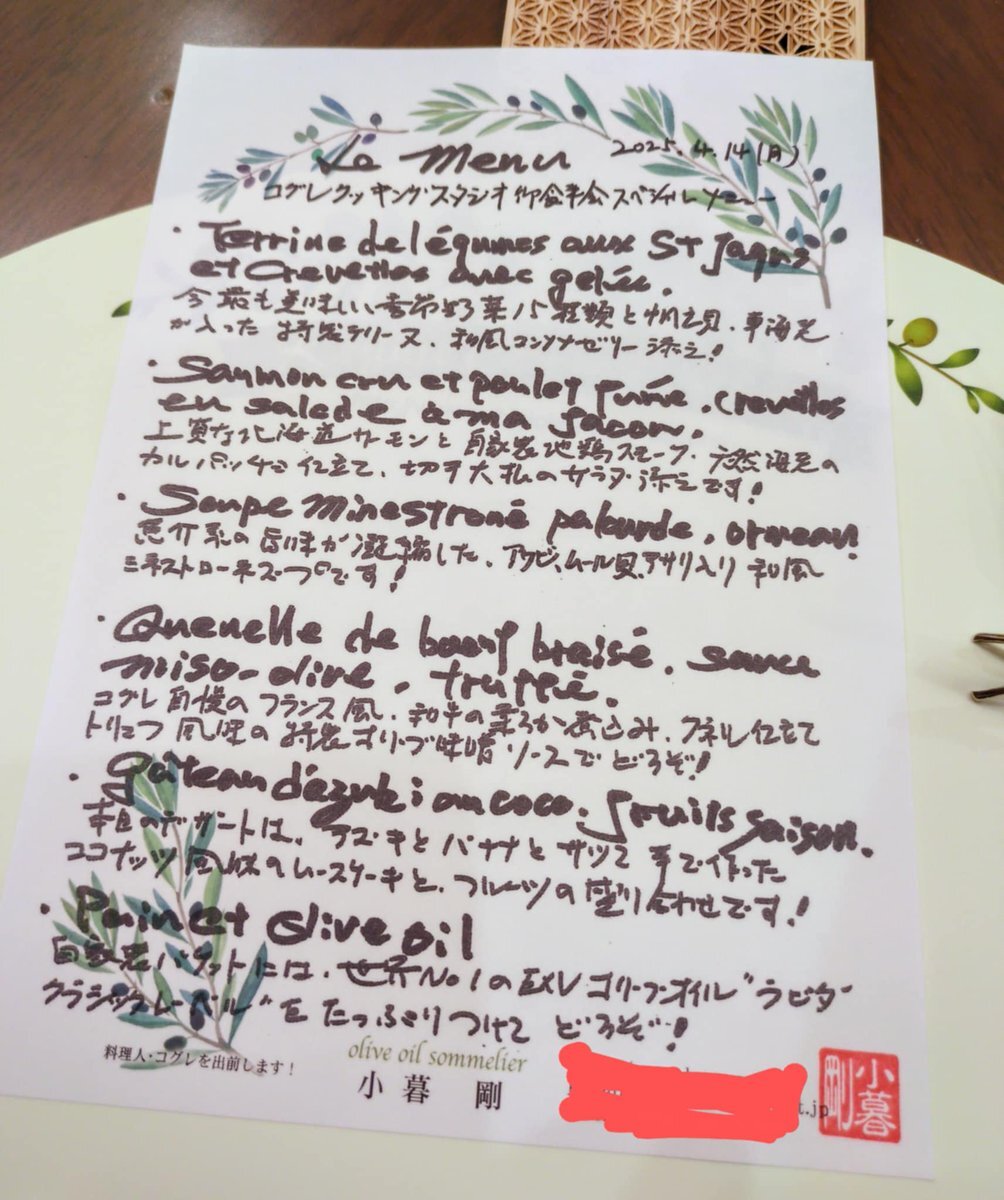 Le Menu
2025.4.14(月)
コグレクッキングスタジオ御食事会スペシャルメニュー
・Terrine de légumes aux St Jaqus
et Crevettes avec gelée.
今最も美味しい季節野菜15種類と帆立貝、車海老
が入った特製テリーヌ、和風コンソメゼリー添え!
・Saumon cru et poulet fumé, crevettes
en salade à ma facon.
上質な北海道サーモンと自家製地鶏スモーク、天然海老の
カルパッチョ仕立て、切干大根のサラダ添えです!
・Soupe minestroné palourde, ormeau!
魚介系の旨味が凝縮した、アワビ、ムール貝、アサリ入り和風
ミネストローネスープです!
・Quenelle de boeuf braisé, sauce
miso-olive, truffe.
コグレ自慢のフランス風、和牛の柔らか煮込み、クネル仕立て
トリュフ風味の特製オリーブ味噌ソースでどうぞ!
・gâteau d'ézuki au coco. fruits saison.
本日のデザートは、アズキとバナナとサツマ芋で作った
ココナッツ風味のムースケーキと、フルーツの盛り合わせです!
・Pain et olive oil
自家製バケットには、世界No.1のEXVオリーブオイル"ラビダ
クラシックレーベル"をたっぷりつけてどうぞ!
料理人・コグレを出前します!
olive oil sommelier
小暮 剛
t.jp
小暮剛